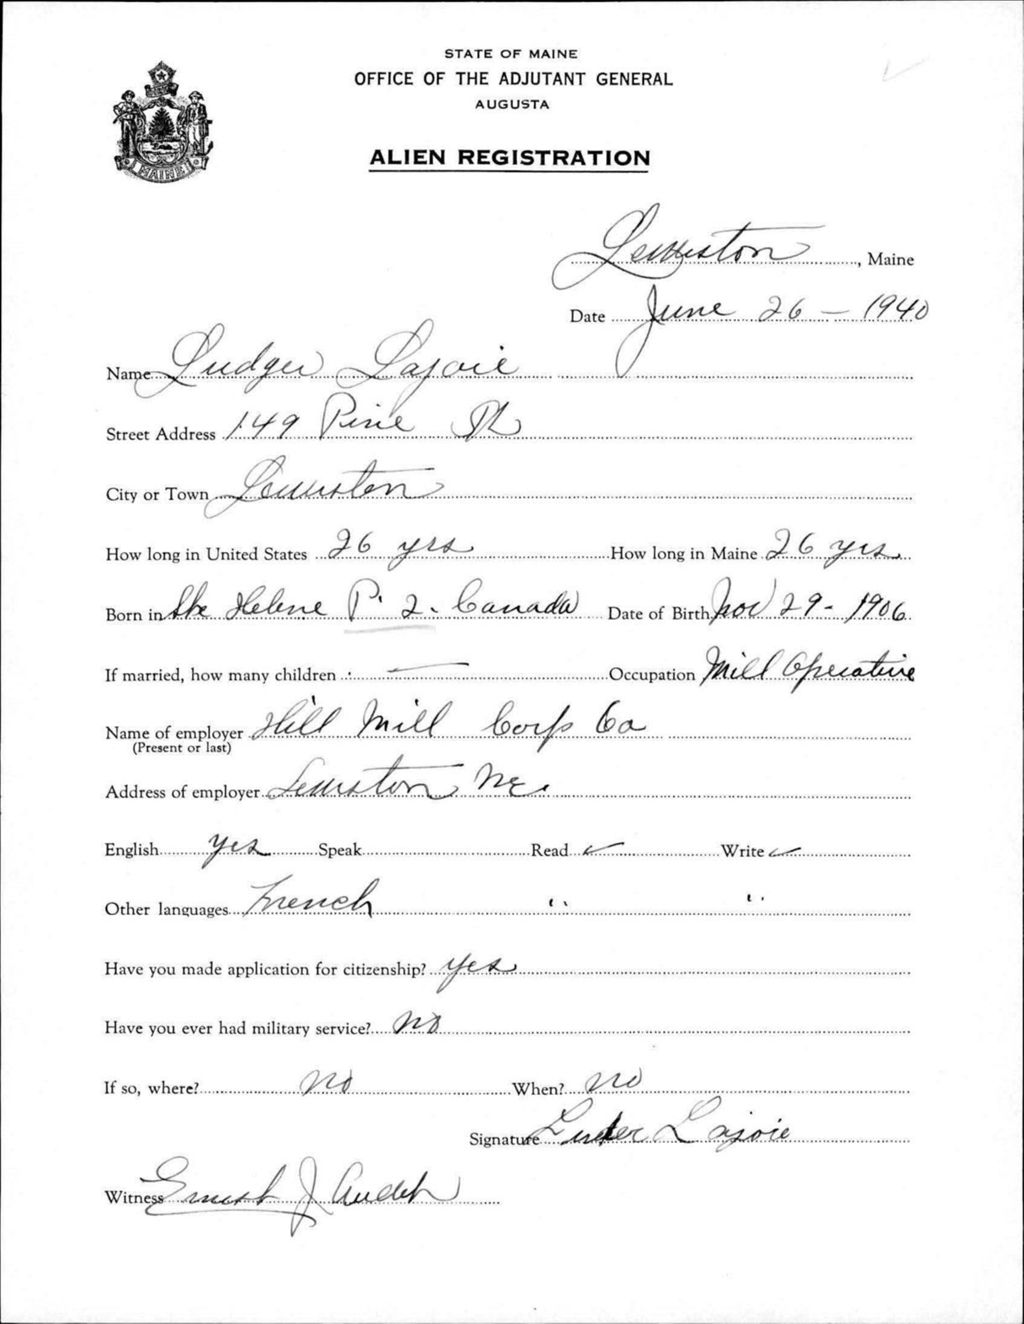 STATE OF MAINE
OFFICE OF THE ADJUTANT GENERAL
AUGUSTA
MAINE
ALIEN REGISTRATION
Lewiston, Maine
Date June 26 - 1940
Name Ludger Lajoie
Street Address 149 Pine St
City or Town Lewiston
How long in United States 26 yrs How long in Maine 26 yrs
Born in Ste Helene P. 2. Canada Date of Birth Nov 29 - 1906
If married, how many children — Occupation Mill Operative
Name of employer Hill Mill Corp Co
(Present or last)
Address of employer Lewiston Me.
English yes Speak Read ✓ Write ✓
Other languages French " "
Have you made application for citizenship? yes
Have you ever had military service? No
If so, where? No When? No
Signature Lajoie
Witness Ernest J Audet